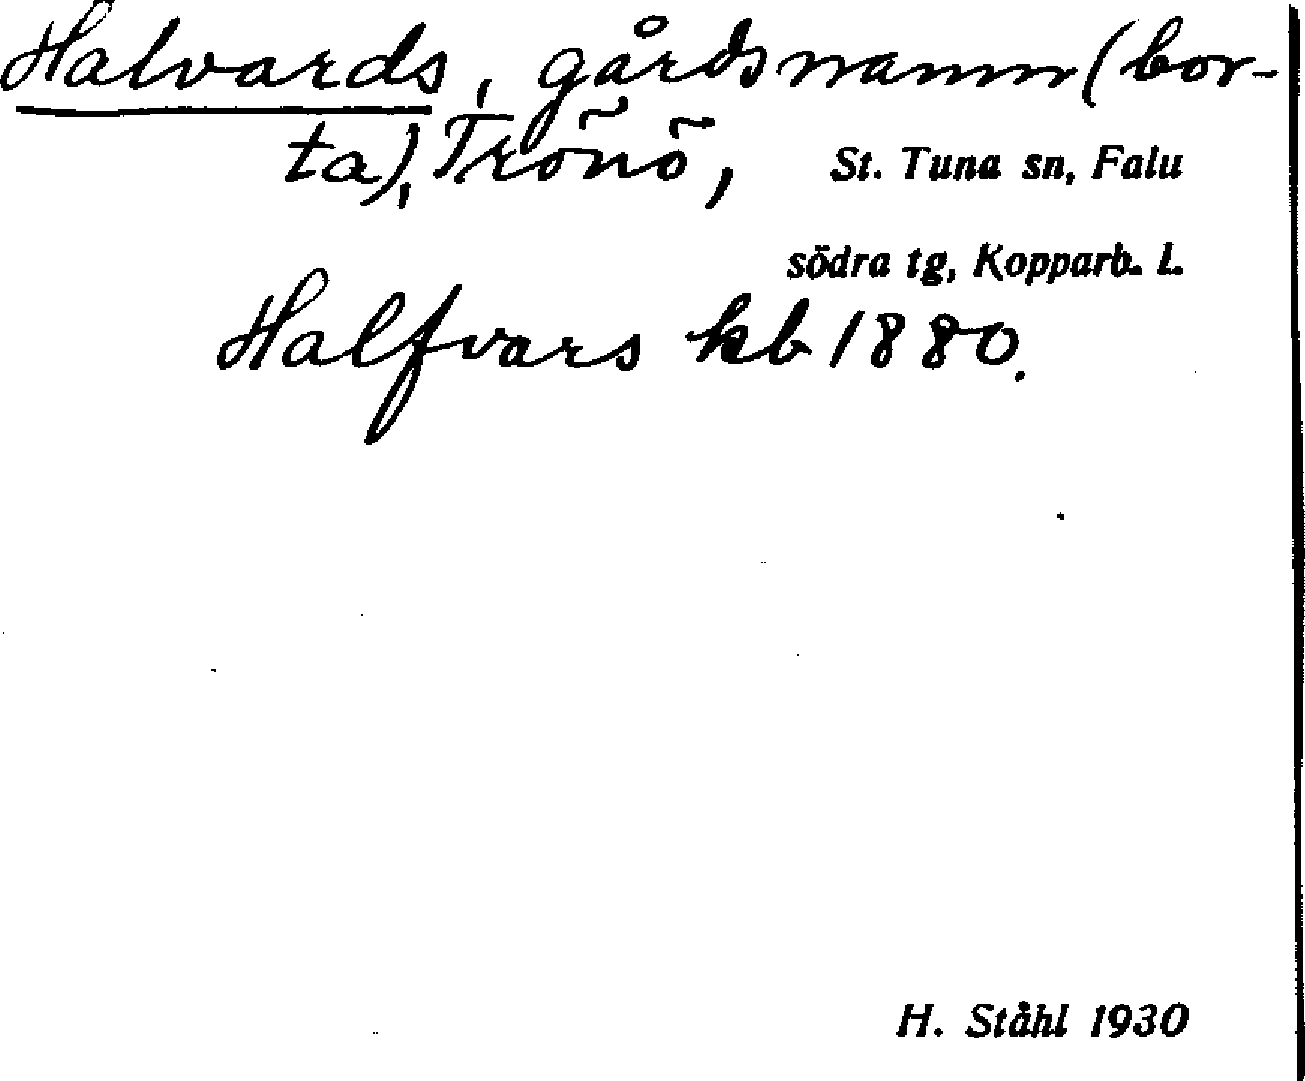 Halvards, gårdsnamn (bor-
ta), Trönö, St. Tuna sn, Falu
södra tg, Kopparb. l.
Halfvars kb 1880.
H. Ståhl 1930